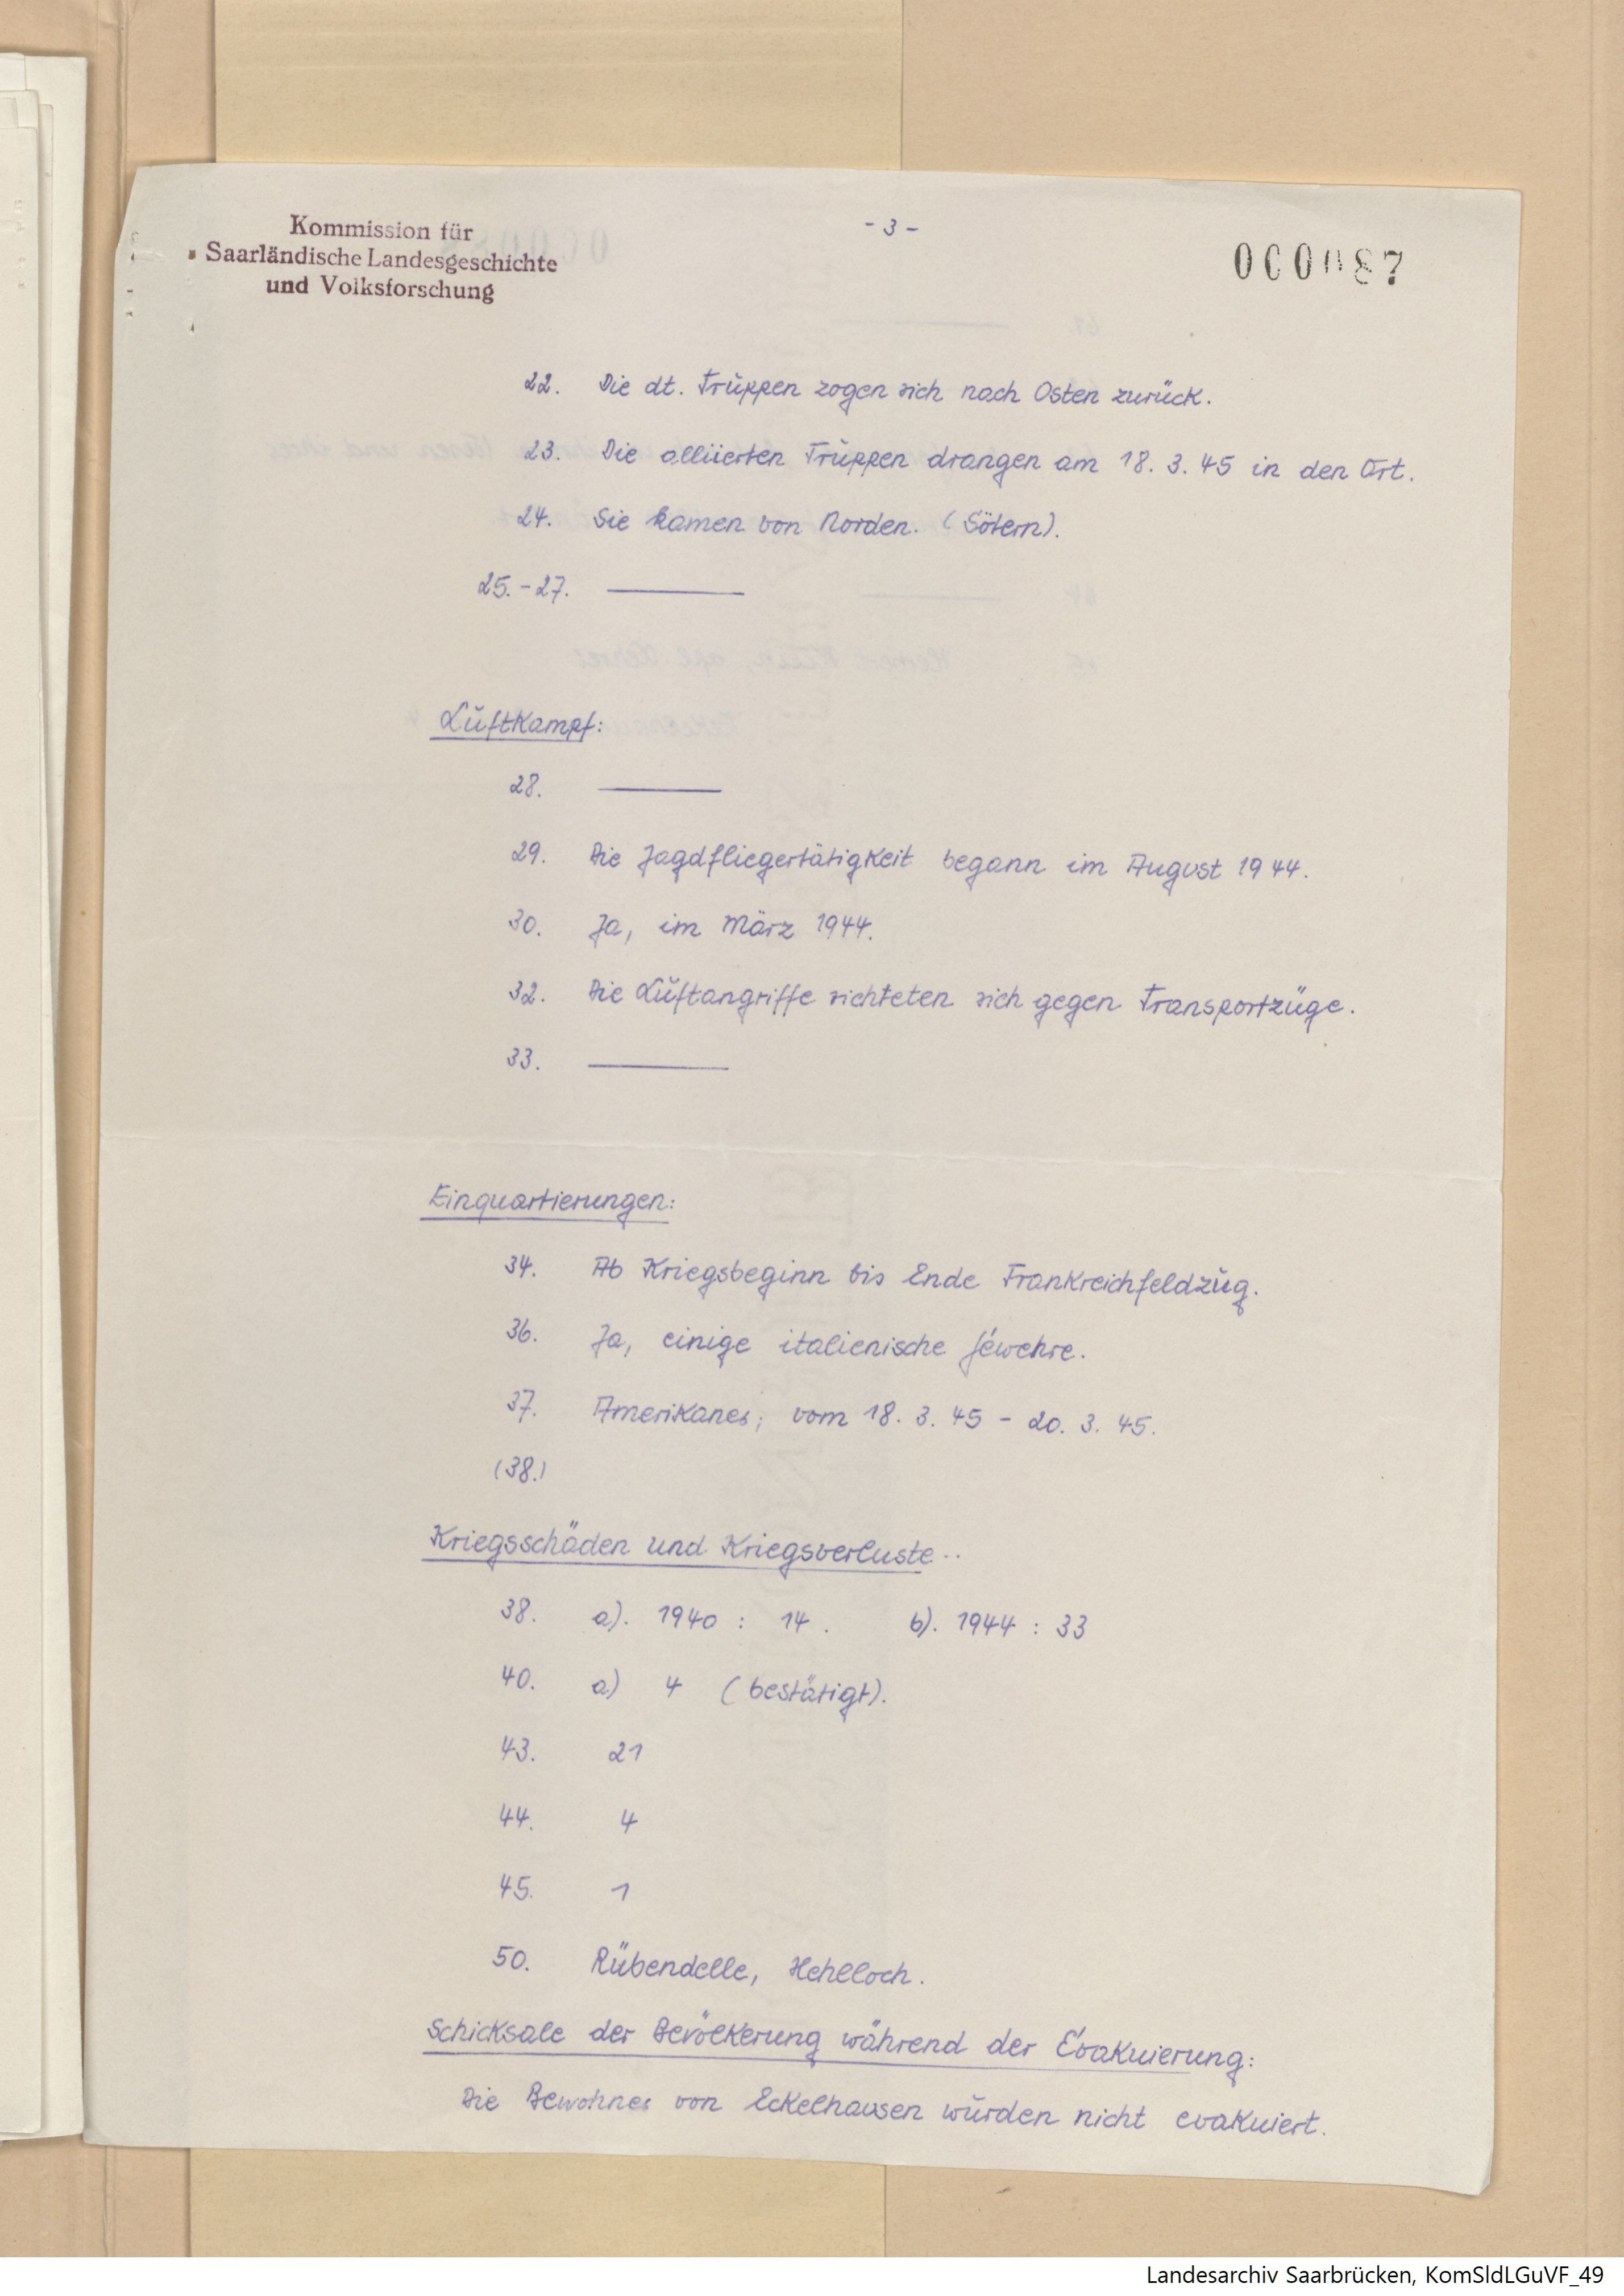 Kommission für
Saarländische Landesgeschichte
und Volksforschung
- 3 -
000087
22. Die dt. Truppen zogen sich nach Osten zurück.
23. Die alliierten Truppen drangen am 18. 3. 45 in den Ort.
24. Sie kamen von Norden. (Sötern).
25. - 27. ———
Luftkampf:
28. ———
29. Die Jagdfliegertätigkeit begann im August 1944.
30. Ja, im März 1944.
32. Die Luftangriffe richteten sich gegen Transportzüge.
33. ———
Einquartierungen:
34. Ab Kriegsbeginn bis Ende Frankreichfeldzug.
36. Ja, einige italienische Gewehre.
37. Amerikaner; vom 18. 3. 45 - 20. 3. 45.
(38.)
Kriegsschäden und Kriegsverluste..
38. a). 1940 : 14. b). 1944 : 33
40. a) 4 (bestätigt).
43. 21
44. 4
45. 1
50. Rübendelle, Hehlloch.
Schicksale der Bevölkerung während der Evakuierung:
Die Bewohner von Eckelhausen wurden nicht evakuiert.
Landesarchiv Saarbrücken, KomSldLGuVF_49